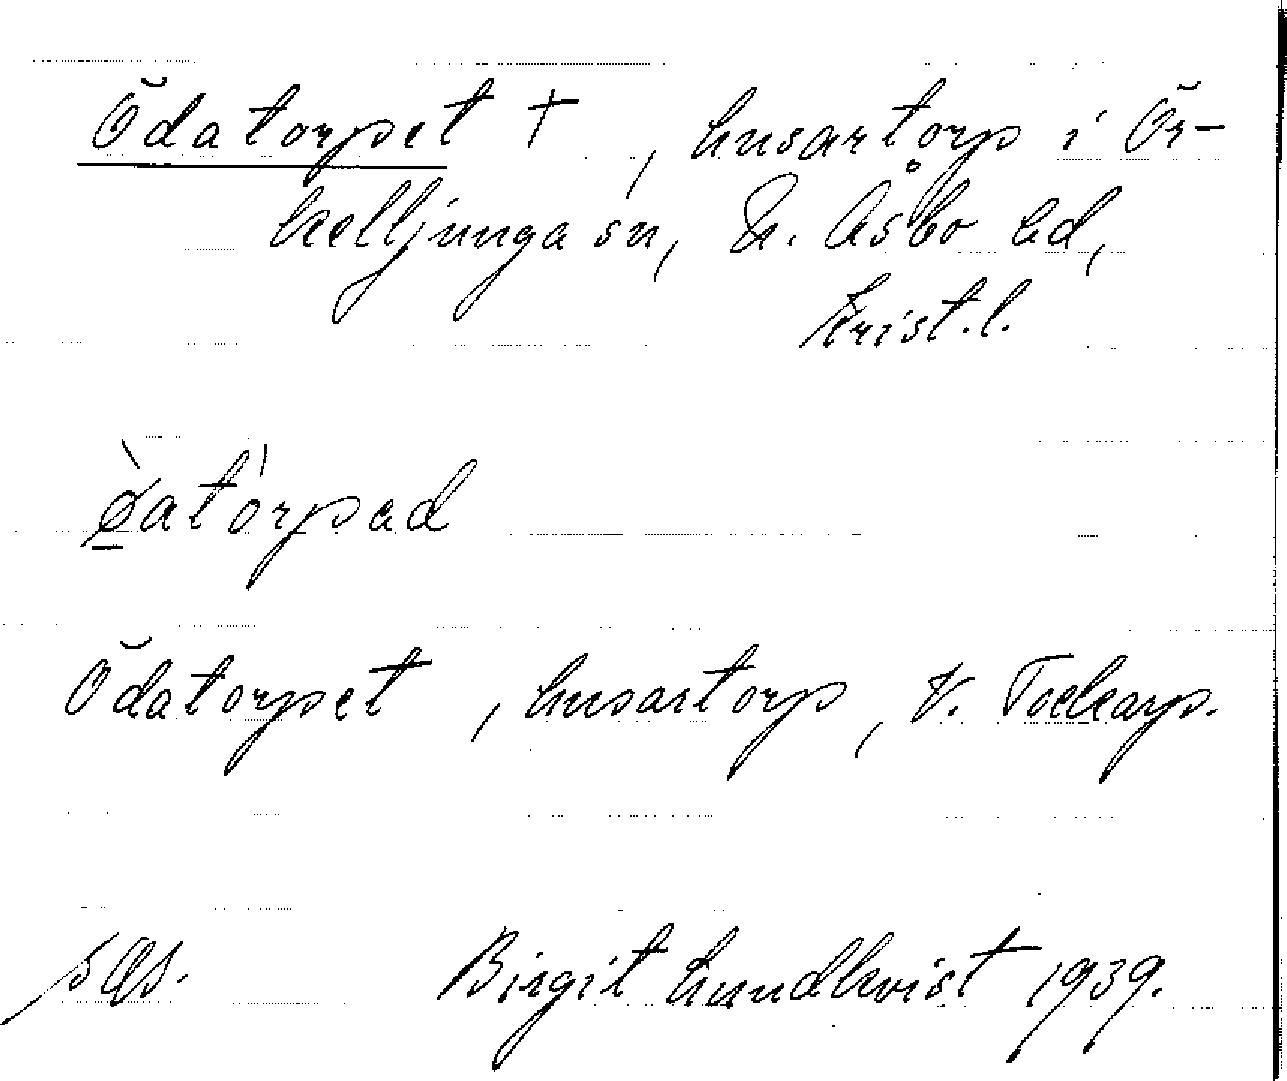 Ödatorpet †, husartorp i Ör-
kelljunga sn, N. Åsbo hd,
Krist.l.
ø̀atórpad
Ödatorpet, husartorp, V. Tockarp.
Birgit Lundkvist 1939.